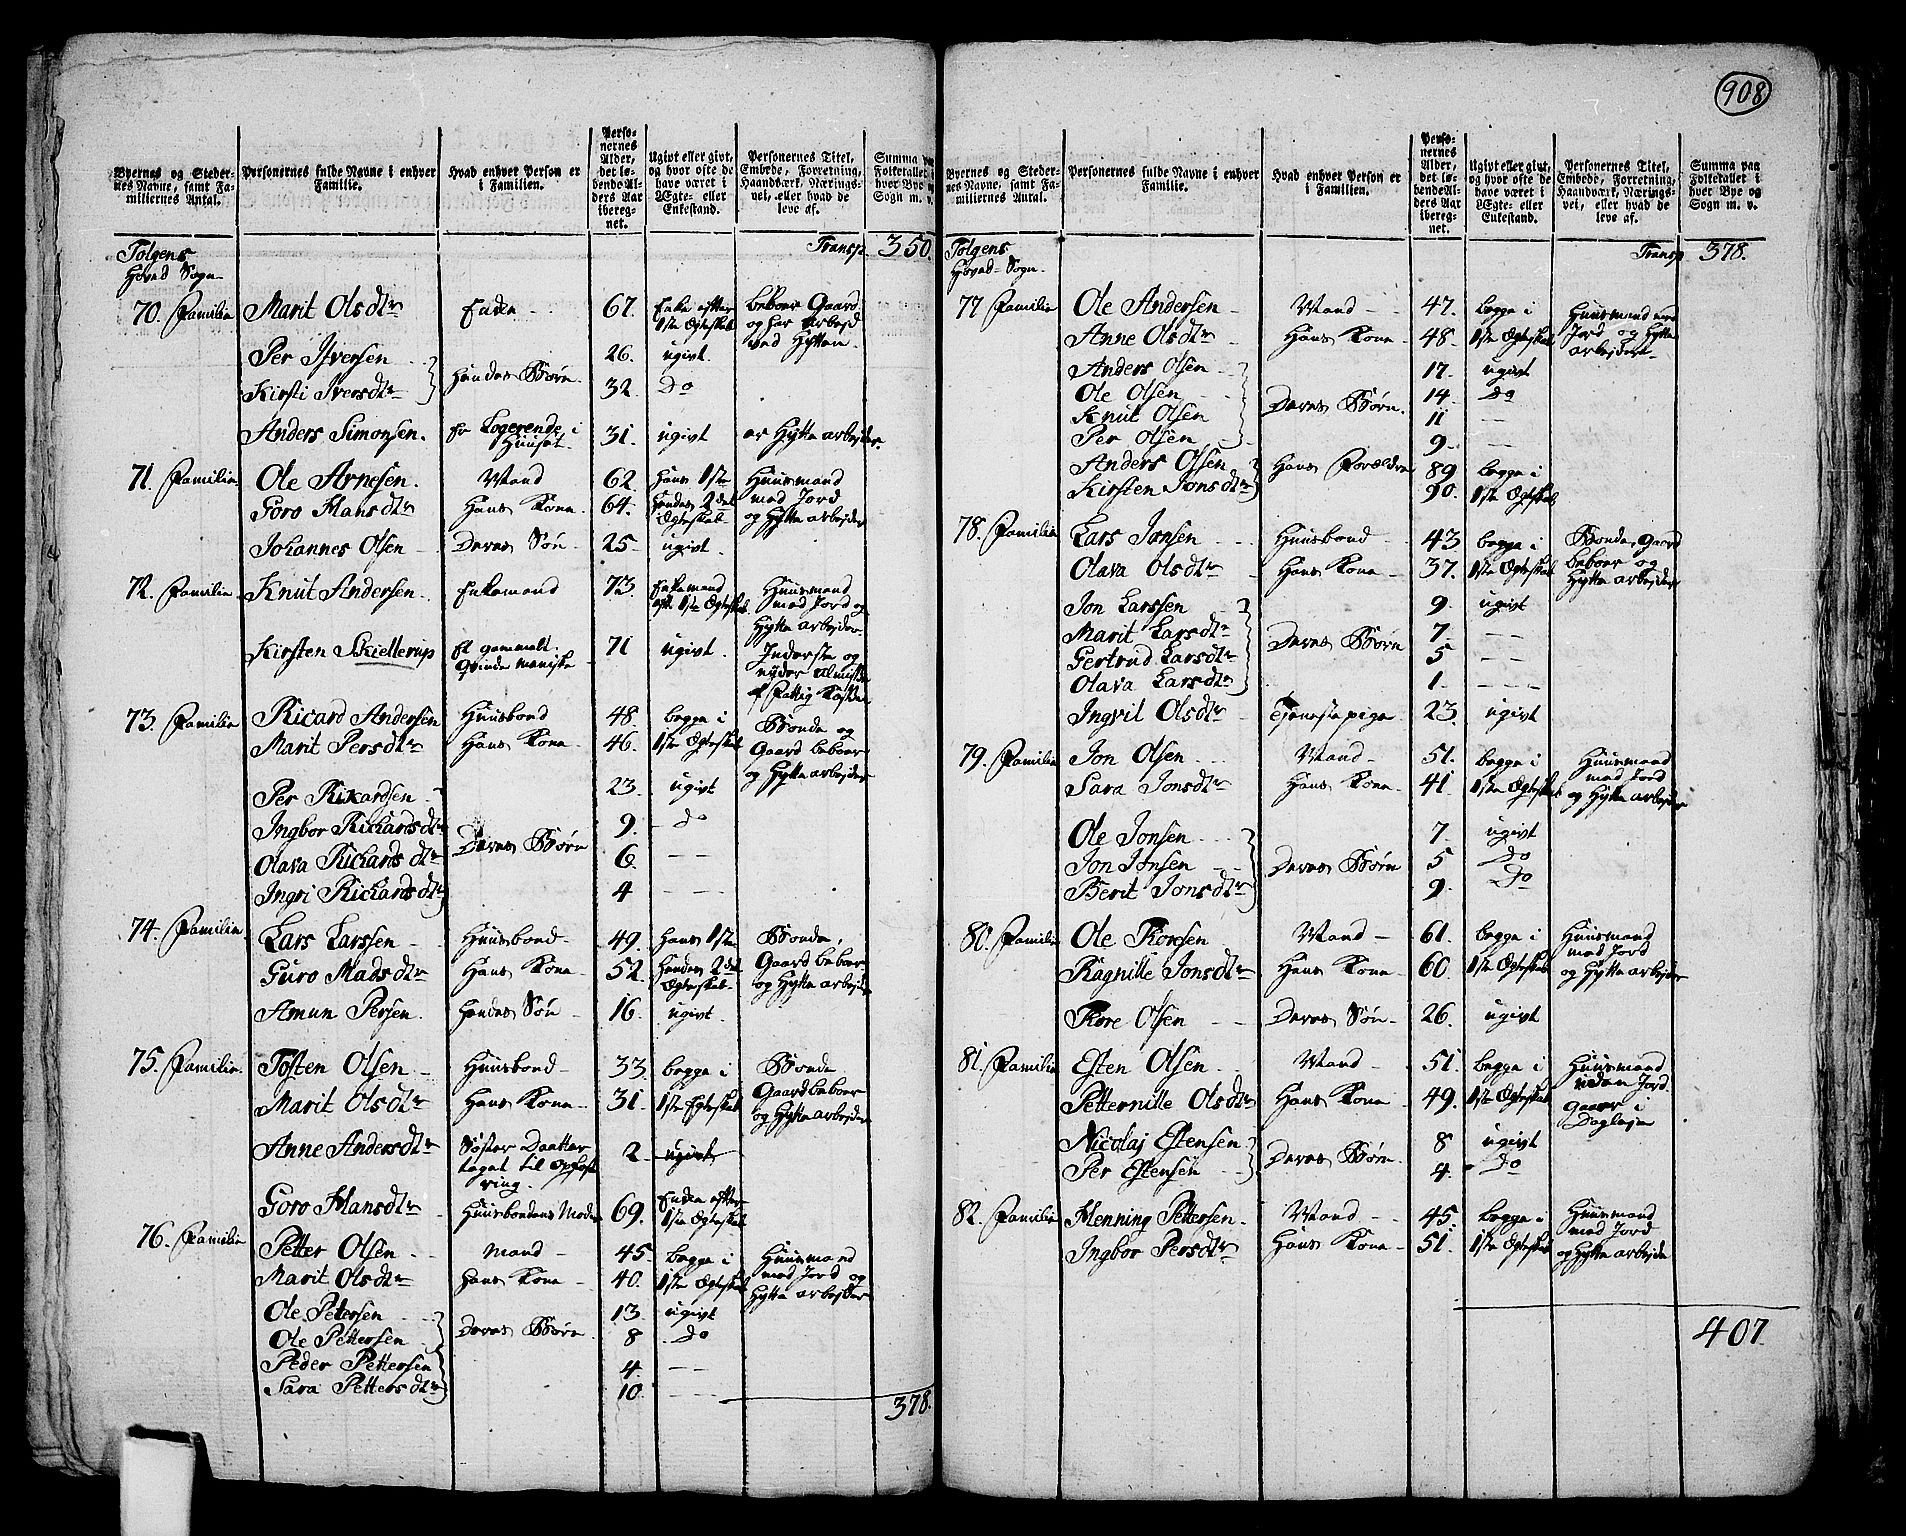 908
Byernes og Steder-
nes Navne, samt Fa-
miliernes Antal.
Personernes fulde Navne i enhver
Familie.
Hvad enhver Person er
i Familien.
Perso-
nernes
Alder,
det lø-
bende Al-
ders Aar
ibereg-
net.
Ugivt eller givt,
og hvor ofte de
have været i
Ægte- eller
Enkestand.
Personernes Titel,
Embede, Forretning,
Haandværk, Nærings-
vei, eller hvad de
leve af.
Summa paa
Folketallet i
hver Bye og
Sogn m. v.
Tolgens
Hoved Sogn
Transp. 350.
70. Familie Marit Olsdtr Enke 67. Enke efter 1ste Ægteskab beboer Gaard og har Arbejd ved Hytten
Per Iversen 26. ugivt.
Kirsti Iversdtr Hendes Børn 32. Do
Anders Simonsen. En Logerende i Huuset. 31. ugivt er Hytte arbejder.
71. Familie Ole Arnesen. Mand 62. Hans 1ste Huusmand med Jord og Hytte arbejder
Goro Hansdtr Hans Kone 64. Hendes 2det Ægteskab
Johannes Olsen Deres Søn 25. ugivt.
72. Familie Knut Andersen. Enkemand 73. Enkemand eft. 1ste Ægteskab Huusmand med Jord og Hytte arbejder
Kirsten Skiellerup Et gammelt Qvinde menniske 71 ugivt. Inderste og nyder Almisse af Fattig Kassen
73. Familie Ricard Andersen Huusbond 48. begge i Bonde og Gaard beboer og Hytte arbejder
Marit Persdtr Hans Kone 46. 1ste Ægteskab
Per Rikardsen 23. ugivt
Ingbor Richardsdtr 9. Do
Olava Richardsdtr Deres Børn 6. — —
Ingri Richardsdtr 4 — —
74. Familie Lars Larssen Huusbond 49. Hans 1ste Bonde, Gaard beboer og Hytte arbejder
Guro Madsdtr Hans Kone 52. Hendes 2det Ægteskab
Amun Persen. Hendes Søn 16. ugivt.
75. Familie. Tosten Olsen Huusbond 33. begge i Bonde Gaard beboer og Hytte arbejder
Marit Olsdtr Hans Kone 31. 1ste Ægteskab
Anne Andersdtr Søster Daatter taget til Opfostring. 2. ugivt
Goro Hansdtr Huusbondens Moder 69. Enke efter 1ste Ægteskab
76. Familie Petter Olsen Mand 45. begge i Huusmand med Jord og Hytte arbejder
Marit Olsdtr Hans Kone 40. 1ste Ægteskab
Ole Petersen 13. ugivt
Ole Pettersen Deres Børn 8 Do
Peder Pettersen 4 — —
Sara Pettersdtr 10. — —
378.
Byernes og Steder-
nes Navne, samt Fa-
miliernes Antal.
Personernes fulde Navne i enhver
Familie.
Hvad enhver Person er
i Familien.
Perso-
nernes
Alder,
det lø-
bende Al-
ders Aar
ibereg-
net.
Ugivt eller givt,
og hvor ofte de
have været i
Ægte- eller
Enkestand.
Personernes Titel,
Embede, Forretning,
Haandværk, Nærings-
vei, eller hvad de
leve af.
Summa paa
Folketallet i
hver Bye og
Sogn m. v.
Tolgens
Hoved-Sogn.
Transp 378.
77 Familie Ole Andersen Mand 47. begge i Huusmand med Jord og Hytte arbejder
Anne Olsdtr Hans Kone 48. 1ste Ægteskab
Anders Olsen 17. ugivt
Ole Olsen 14. Do
Knut Olsen Deres Børn. 11 — —
Per Olsen 9. — —
Anders Olsen Hans Forældre 89 begge i
Kirsten Jonsdtr 90. 1ste Ægteskab
78. Familie Lars Jonsen Huusbond 43 begge i Bonde, Gaard beboer og Hytte arbejder
Olava Olsdtr Hans Kone 37. 1ste Ægteskab
Jon Larssen 9. ugivt
Marit Larsdtr Deres Børn 7. — —
Gertrud Larsdtr 5 — —
Olava Larsdtr 1. — —
Ingvil Olsdtr Tjenestepige 23. ugivt
79. Familie Jon Olsen Mand 51. begge i Huusmand med Jord og Hytte arbejder
Sara Jonsdtr Hans Kone 41. 1ste Ægteskab
Ole Jonsen 7. ugivt
Jon Jonsen Deres Børn 5 Do
Berit Jonsdtr 9. Do
80. Familie Ole Toresen Mand 61. begge i Huusmand med Jord og Hytte arbejder
Ragnille Jonsdtr Hans Kone 60. 1ste Ægteskab
Tore Olsen Deres Søn 26. ugivt
81. Familie Esten Olsen Mand 51. begge i Huusmand uden Jord. Gaaer i Dagleje
Petternille Olsdtr Hans Kone 49. 1ste Ægteskab
Nicolaj Estensen Deres Børn 8 ugivt
Per Estensen 4. Do
82. Familie Henning Pettersen. Mand 45. begge i Huusmand med Jord og Hytte arbejde
Ingbor Persdtr Hans Kone 51. 1ste Ægteskab
407.